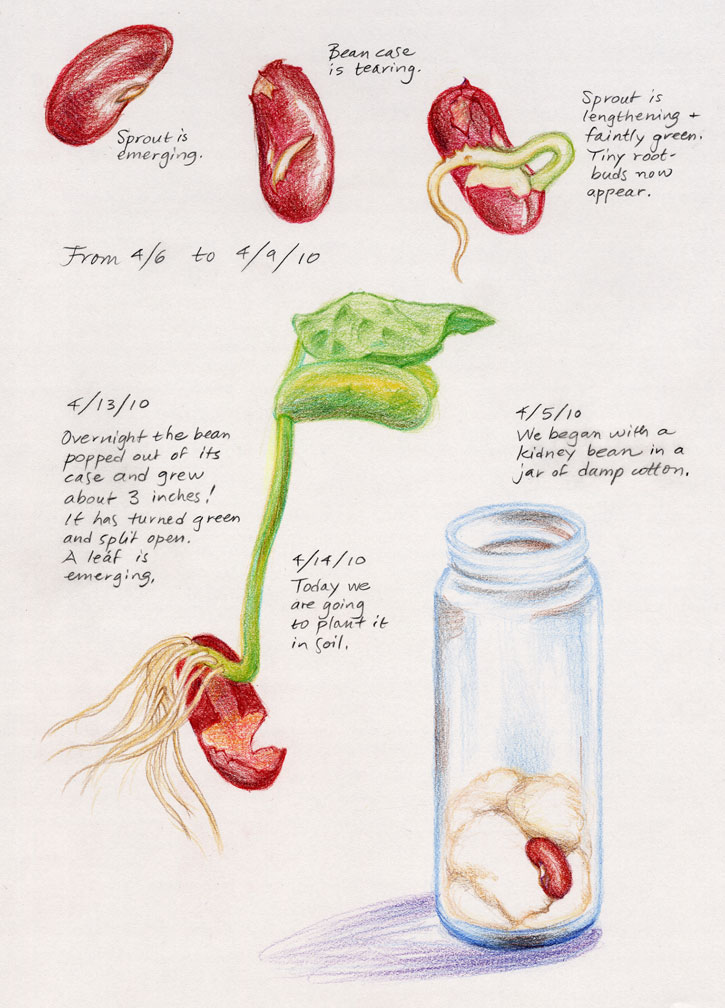 Sprout is
emerging.
Bean case
is tearing.
Sprout is
lengthening +
faintly green.
Tiny root-
buds now
appear.
From 4/6 to 4/9/10
4/13/10
Overnight the bean
popped out of its
case and grew
about 3 inches!
It has turned green
and split open.
A leaf is
emerging.
4/14/10
Today we
are going
to plant it
in soil.
4/5/10
We began with a
kidney bean in a
jar of damp cotton.